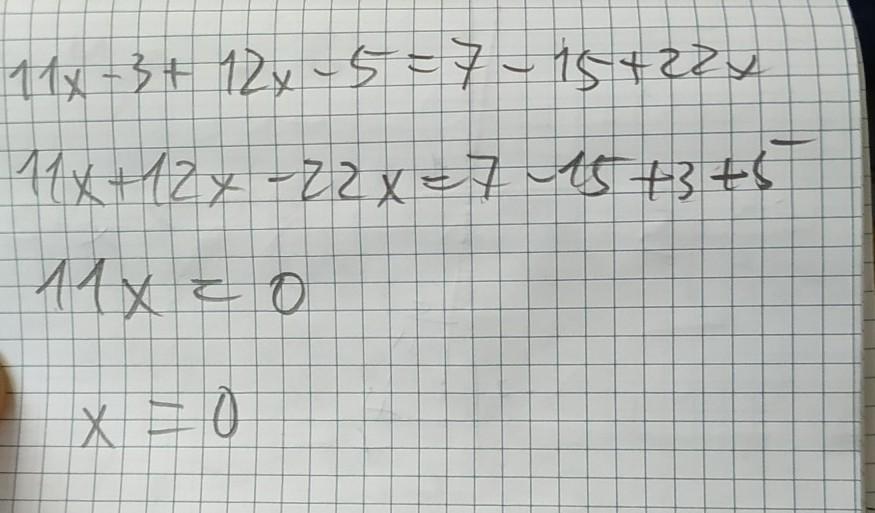 11x-3+12x-5=7-15+22x
11x+12x-22x=7-15+3+5
11x=0
x=0